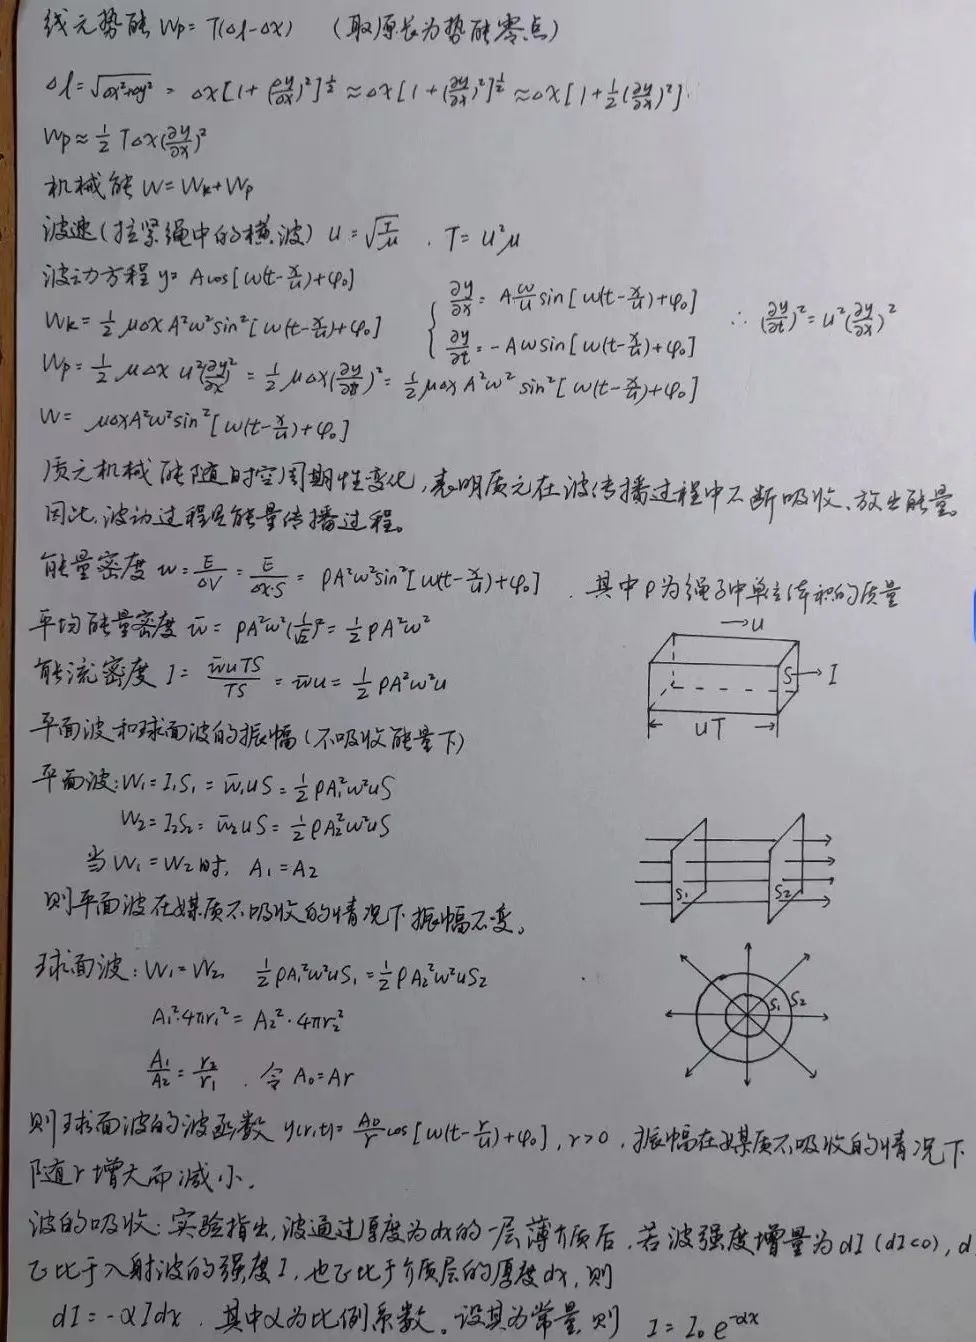 线元势能 Wp = T(Δl-Δx) （取原长为势能零点）
Δl = √(Δx²+Δy²) = Δx[1+(Δy/Δx)²]^½ ≈ Δx[1+(∂y/∂x)²]^½ ≈ Δx[1+½(∂y/∂x)²].
Wp ≈ ½TΔx(∂y/∂x)²
机械能 W = Wk+Wp
波速(拉紧绳中的横波) u = √(T/μ) . T = u²μ
波动方程 y = Acos[ω(t-x/u)+φ₀]
Wk = ½μΔxA²ω²sin²[ω(t-x/u)+φ₀]
{ ∂y/∂x = A(ω/u)sin[ω(t-x/u)+φ₀]
∂y/∂t = -Aωsin[ω(t-x/u)+φ₀]
∴ (∂y/∂t)² = u²(∂y/∂x)²
Wp = ½μΔx u²(∂y/∂x)² = ½μΔx(∂y/∂t)² = ½μΔxA²ω²sin²[ω(t-x/u)+φ₀]
W = μΔxA²ω²sin²[ω(t-x/u)+φ₀]
质元机械能随时空周期性变化,表明质元在波传播过程中不断吸收、放出能量。
因此,波动过程是能量传播过程。
能量密度 w = E/ΔV = E/(Δx·S) = ρA²ω²sin²[ω(t-x/u)+φ₀] . 其中ρ为绳子中单位体积的质量
平均能量密度 w̄ = ρA²ω²(1/√2)² = ½ρA²ω²
→u
能流密度 I = w̄uTS/TS = w̄u = ½ρA²ω²u
S I
uT
平面波和球面波的振幅(不吸收能量下)
平面波: W₁ = I₁S₁ = w̄₁uS = ½ρA₁²ω²uS
W₂ = I₂S₂ = w̄₂uS = ½ρA₂²ω²uS
当 W₁ = W₂时, A₁ = A₂
S₁ S₂
则平面波在媒质不吸收的情况下振幅不变。
球面波: W₁ = W₂ ½ρA₁²ω²uS₁ = ½ρA₂²ω²uS₂
A₁²·4πr₁² = A₂²·4πr₂²
S₁ S₂
A₁/A₂ = r₂/r₁ . 令 A₀ = Ar
则球面波的波函数 y(r,t) = (A₀/r)cos[ω(t-r/u)+φ₀], r>0 . 振幅在媒质不吸收的情况下
随r增大而减小.
波的吸收: 实验指出,波通过厚度为dx的一层薄介质后,若波强度增量为dI(dI<0), d
正比于入射波的强度I,也正比于介质层的厚度dx,则
dI = -αIdx . 其中α为比例系数。设其为常量,则 I = I₀e^(-αx)